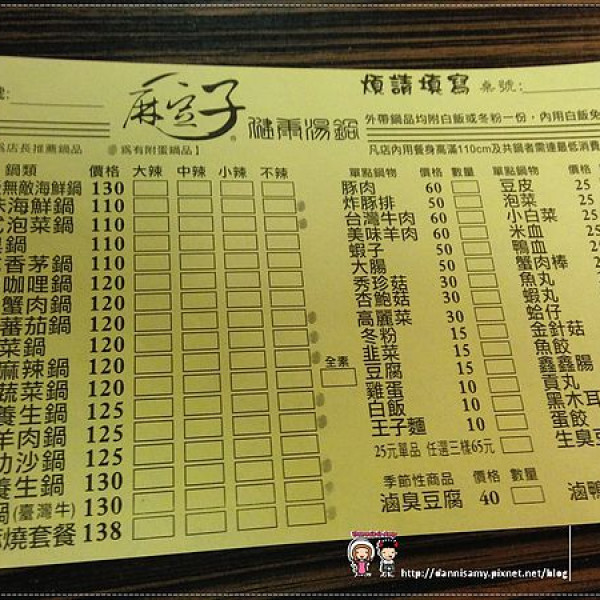 麻豆子
健康湯鍋
煩請填寫 桌號:
外帶鍋品均附白飯或冬粉一份，內用白飯免
為店長推薦鍋品 為有附蛋鍋品】
凡店內用餐身高滿110cm及共鍋者需達最低消費
鍋類 價格 大辣 中辣 小辣 不辣
無敵海鮮鍋 130
海鮮鍋 110
泡菜鍋 110
鍋 110
香茅鍋 110
咖哩鍋 120
蟹肉鍋 120
蕃茄鍋 120
菜鍋 120
麻辣鍋 120
蔬菜鍋 120
養生鍋 125
羊肉鍋 125
沙鍋 125
養生鍋 130
鍋(臺灣牛) 130
燒套餐 138
全素
單點鍋物 價格 數量
豚肉 60
炸豚排 50
台灣牛肉 60
美味羊肉 60
蝦子 50
大腸 50
秀珍菇 30
杏鮑菇 30
高麗菜 30
冬粉 15
韭菜 15
豆腐 15
雞蛋 10
白飯 10
王子麵 10
25元單品 任選三樣65元
季節性商品 價格 數量
滷臭豆腐 40
滷鴨
單點鍋物 價格
豆皮 25
泡菜 25
小白菜 25
米血 25
鴨血 25
蟹肉棒 25
魚丸
蝦丸
蛤仔
金針菇
魚餃
鑫鑫腸
貢丸
黑木耳
蛋餃
生臭豆
http://dannisamy.pixnet.net/blog